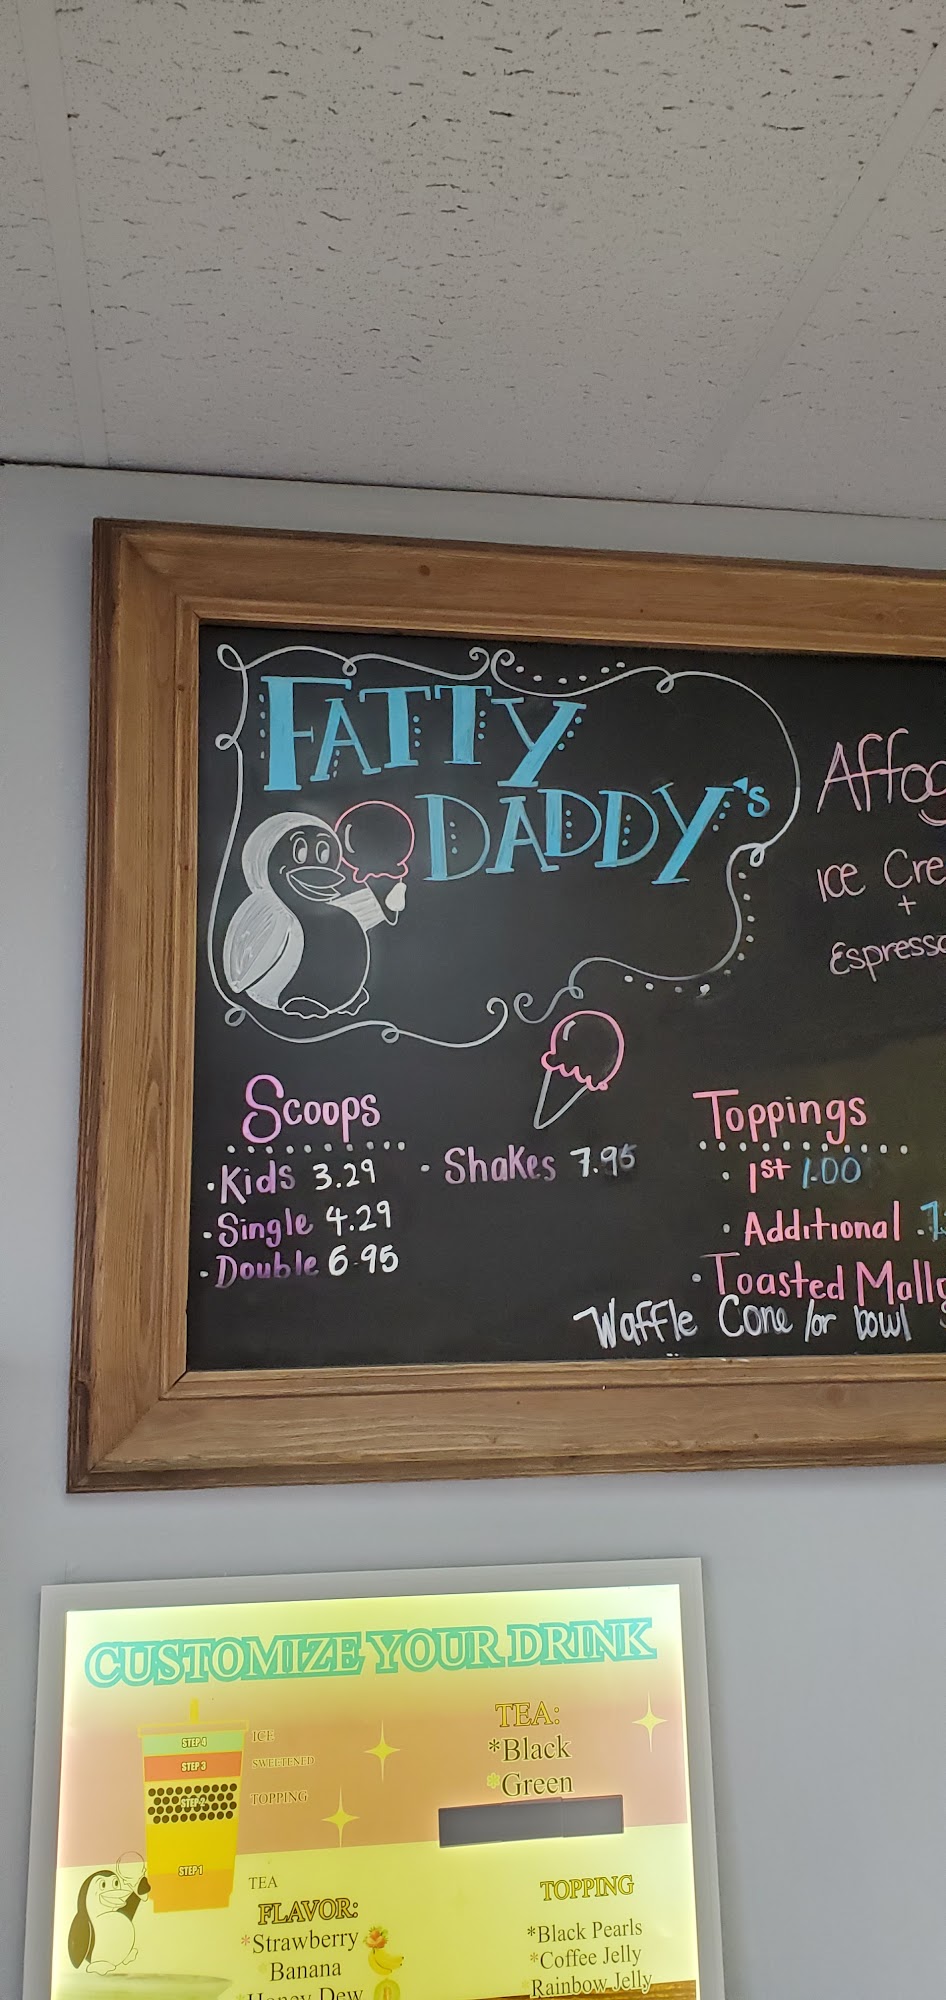 FATTY
DADDY's
Ice Cre
+
Espresso
Scoops
• Kids 3.29
• Single 4.29
• Double 6.95
• Shakes 7.95
Toppings
• 1st 1.00
• Additional
• Toasted
Waffle Cone /or bowl
CUSTOMIZE YOUR DRINK
STEP 4
ICE
STEP 3
SWEETENED
STEP 2
TOPPING
STEP 1
TEA
TEA:
*Black
*Green
FLAVOR:
*Strawberry
Banana
Honey Dew
TOPPING
*Black Pearls
*Coffee Jelly
*Rainbow Jelly